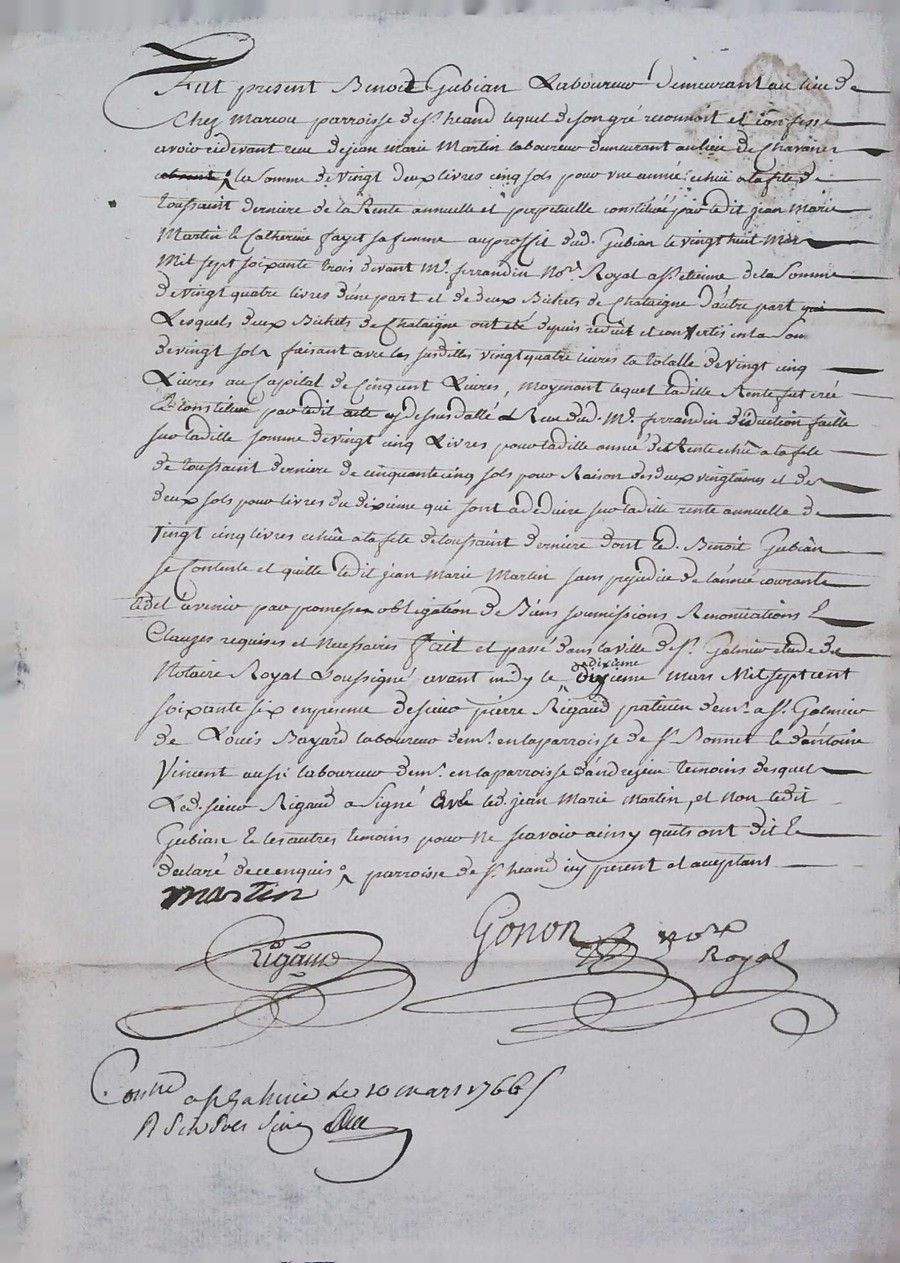 Fut present Benoit Gubian Laboureur demeurant au lieu de
Chez Mariou parroisse de st. heand lequel de son gré reconnoit et confesse
avoir cidevant reçu de jean marie Martin laboureur demeurant au lieu de Chavanes
absent la Somme de vingt deux livres cinq sols pour une année echue a la fete de
toussaint derniere de la Rente annuelle et perpetuelle constituée par ledit jean Marie
Martin & Catherine fayet sa femme au proffit dud. Gubian le vingt huit Mars
Mil sept soixante trois devant Me. ferrandin Nore. Royal a st. etienne de la Somme
de vingt quatre livres d'une part et de deux Bichets de Chataigne d'autre part qui
Lesquels deux Bichets de Chataigne ont eté depuis reduit et convertis en la Som
de vingt sols faisant avec les susdittes vingt quatre livres la totalle de vingt cinq
Livres au Capital de Cinq cent Livres, moyenant lequel laditte Rente fut créé
& constitué par ledit acte cy dessus datté & Reçu dud. Me. ferrandin deduction faitte
sur laditte somme de vingt cinq Livres pour laditte année de Rente echue a la fete
de toussaint derniere de cinquante cinq sols pour Raison des deux vingtiemes et des
deux sols pour livres du dixieme qui sont a deduire sur laditte rente annuelle de
vingt cinq livres echue a la fete de toussaint derniere dont led. Benoit Gubian
se Contente et quitte ledit jean Marie Martin sans prejudice de l'année courante
& de l'avenir par promesses obligation de Biens soumissions Renonciations &
Clauzes requises et necessaires fait et passé dans la ville de st. Galmier etude du
Notaire Royal Soussigné avant midy le dixieme
dixieme mars Mil sept cent
soixante six en presence de sieur pierre Rigaud praticien demt. a st. Galmier
de Louis Bayard laboureur demt. en la parroisse de st. Bonnet & d'antoine
Vincent aussi laboureur demt. en la parroisse d'andrezieu temoins desquels
Led. sieur Rigaud a signé avec led. jean Marie Martin, et non ledit
Gubian & les autres temoins pour ne scavoir ainsy qu'ils ont dit &
declaré de ce enquis parroisse de st. heand icy present et acceptant
martin
Rigaud
Gonon nore
Royal
Conllé a st galmier le 10 mars 1766